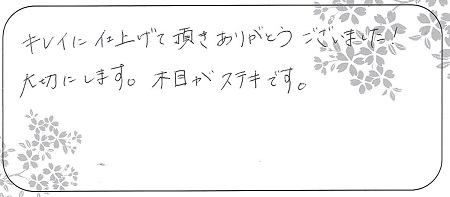 キレイに仕上げて頂きありがとうございました!
大切にします。木目がステキです。